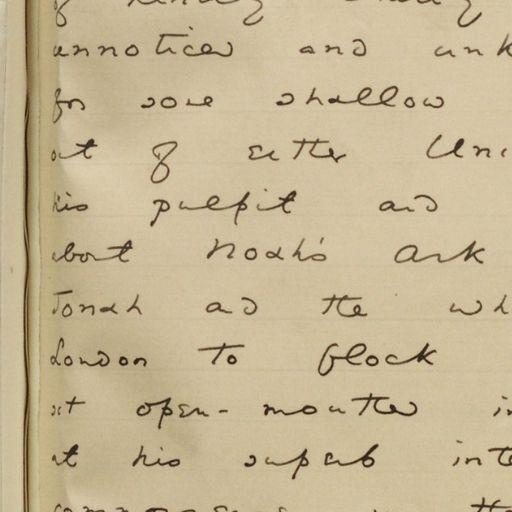 unnoticed and unk
for some shallow
out of either Uni
his pulpit and
about Noah's Ark
Jonah and the wh
London to flock
sit open-mouthed in
at his superb inte